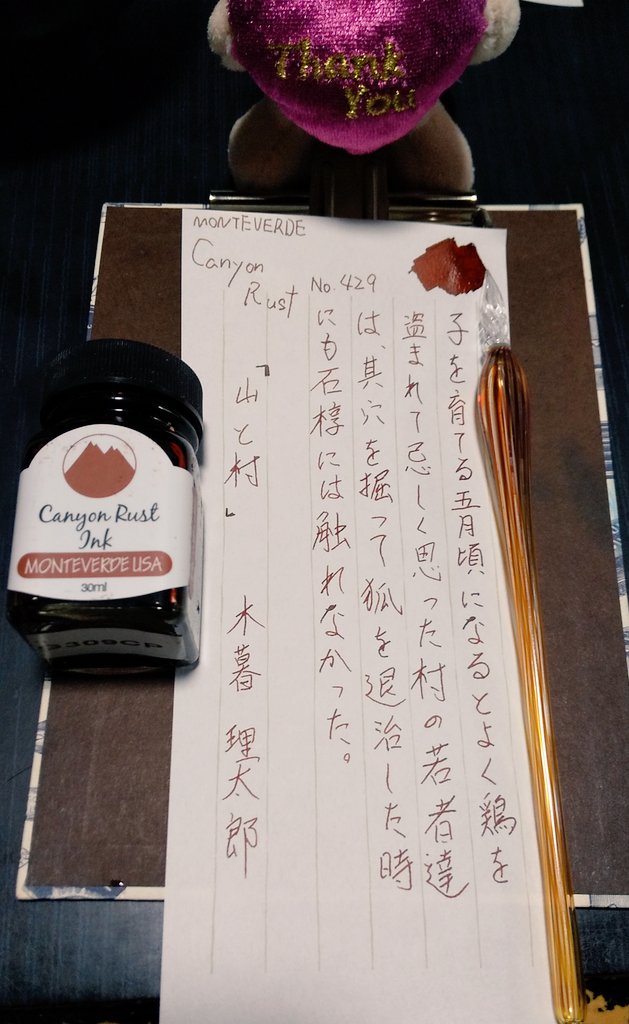 Thank
You
MONTEVERDE
Canyon
Rust
No.429
子を育てる五月頃になるとよく鶏を
盗まれて忌しく思った村の若者達
は、其穴を掘って狐を退治した時
にも石槨には触れなかった。
「山と村」 木暮 理太郎
Canyon Rust
Ink
MONTEVERDE USA
30ml